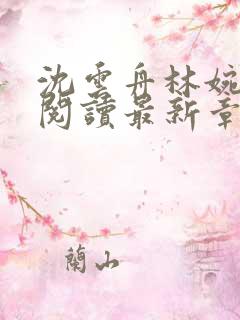 沈雲舟林婉
閱讀最新章
蘭山